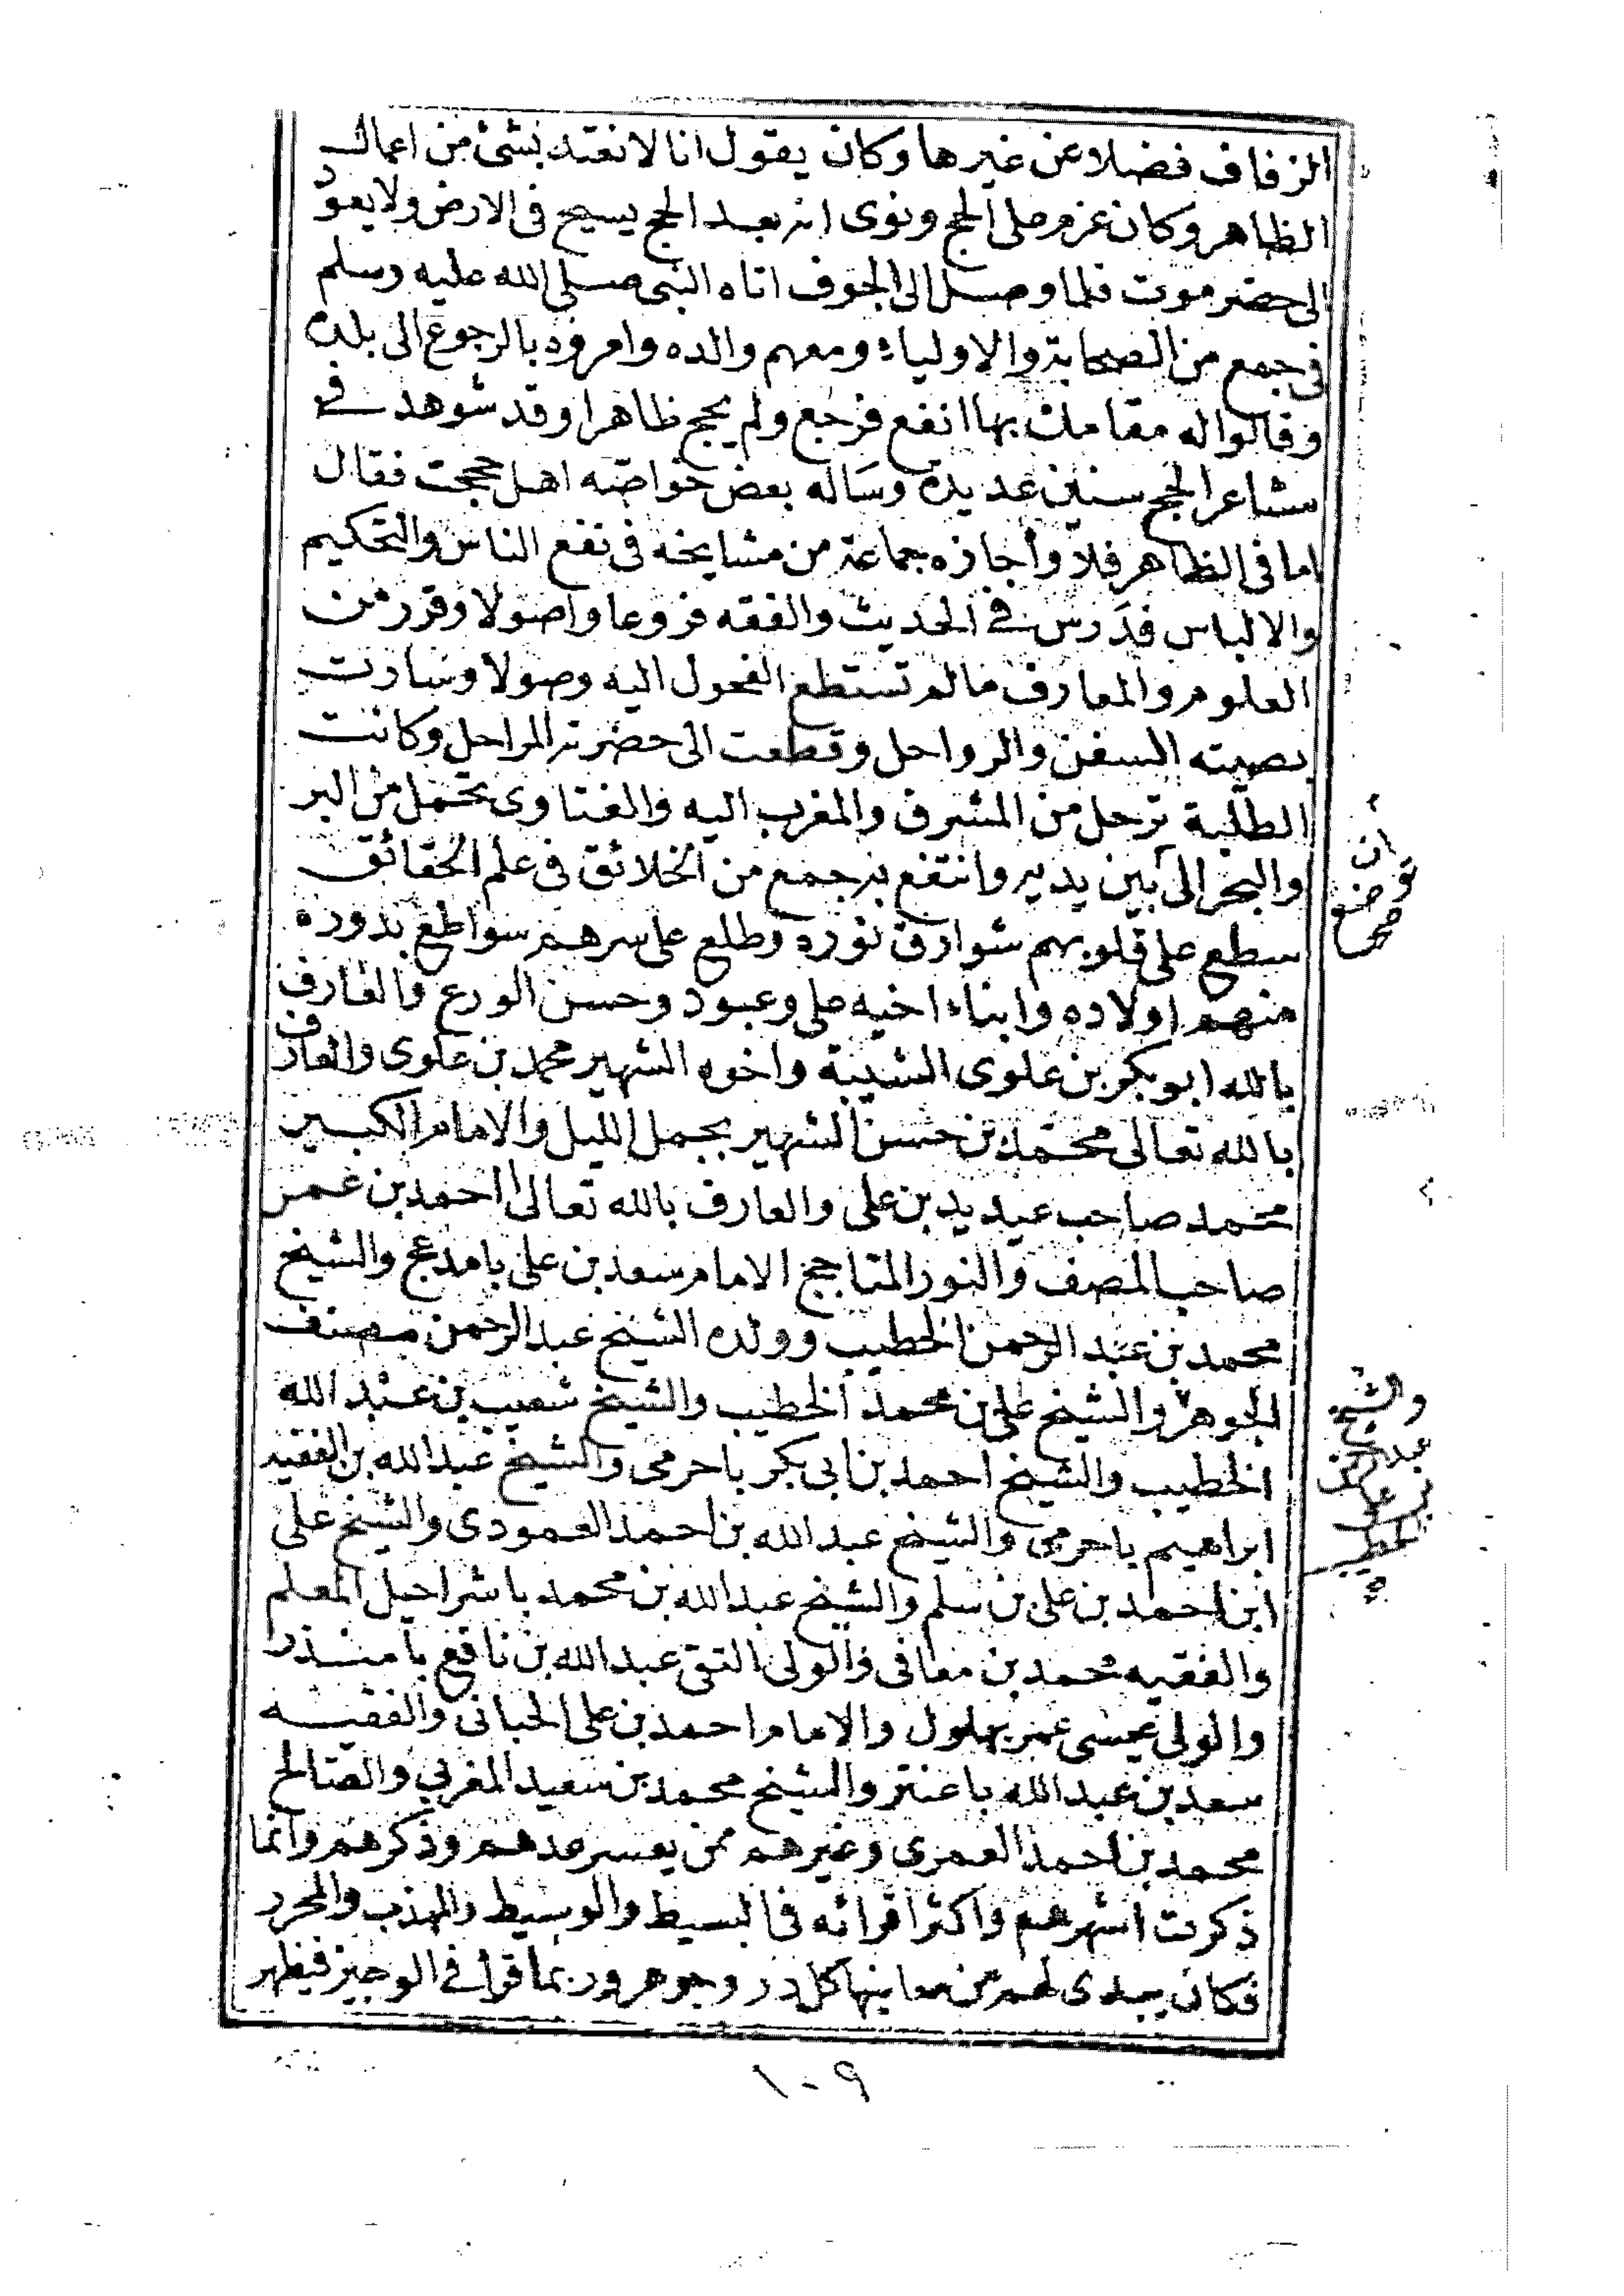 الزفاف فضلا عن غيرها وكان يقول انا لا نعتد بشئ من اعمال
الظاهر وكان عزم على الحج ونوى انه بعد الحج يسيح في الارض ولا يعود
الى حضرموت فلما وصل الى الجوف اتاه النبي صلى الله عليه وسلم
في جمع من الصحابة والاولياء ومعهم والده وامروه بالرجوع الى بلده
وقالوا له مقامك بها انفع فرجع ولم يحج ظاهرا وقد شوهد في
مشاعر الحج سنين عديدة وساله بعض خواصه اهل حججت فقال
اما في الظاهر فلا وأجازه جماعة من مشايخه في نفع الناس والتحكيم
والالباس فدرس في الحديث والفقه فروعا واصولا وقرر من
العلوم والمعارف ما لم تستطع الفحول اليه وصولا وسارت
بصيته السفن والرواحل وقطعت الى حضرته المراحل وكانت
الطلبة ترحل من المشرق والمغرب اليه والفتاوى تحمل من البر
والبحر الى بين يديه وانتفع به جمع من الخلائق في علم الحقائق
سطع على قلوبهم شوارق نوره وطلع على سرهم سواطع بدوره
منهم اولاده وابناء اخيه علي وعبود وحسن الورع والعارف
بالله ابو بكر بن علوى الشيبة واخوه الشهير محمد بن علوى والعارف
بالله تعالى محمد بن حسن الشهير بجمل الليل والامام الكبير
محمد صاحب عيديد بن على والعارف بالله تعالى احمد بن عمر
صاحب المصف والنور المتاجج الامام سعد بن على بامدحج والشيخ
محمد بن عبد الرحمن الخطيب وولده الشيخ عبد الرحمن مصنف
الجوهر والشيخ على بن محمد الخطيب والشيخ شعيب بن عبد الله
الخطيب والشيخ احمد بن ابي بكر باحرمى والشيخ عبد الله بن الفقيه
ابراهيم باحرمى والشيخ عبد الله بن احمد العمودى والشيخ على
ابن احمد بن على بن سلم والشيخ عبد الله بن محمد باشراحيل المعلم
والفقيه محمد بن معافى والولى التقى عبد الله بن نافع بامنذر
والولى عيسى عمر بهلول والامام احمد بن على الحبانى والفقيه
سعد بن عبد الله باعنتر والشيخ محمد بن سعيد المغربي والصالح
محمد بن احمد العمرى وغيرهم ممن يعسر عدهم وذكرهم وانما
ذكرت اشهرهم واكثر اقرائه في البسيط والوسيط والمهذب والمحرر
فكان يبدى لهم من معانيها كل در وجوهر وربما قرأ في الوجيز فيظهر
والشيخ
١٠٩